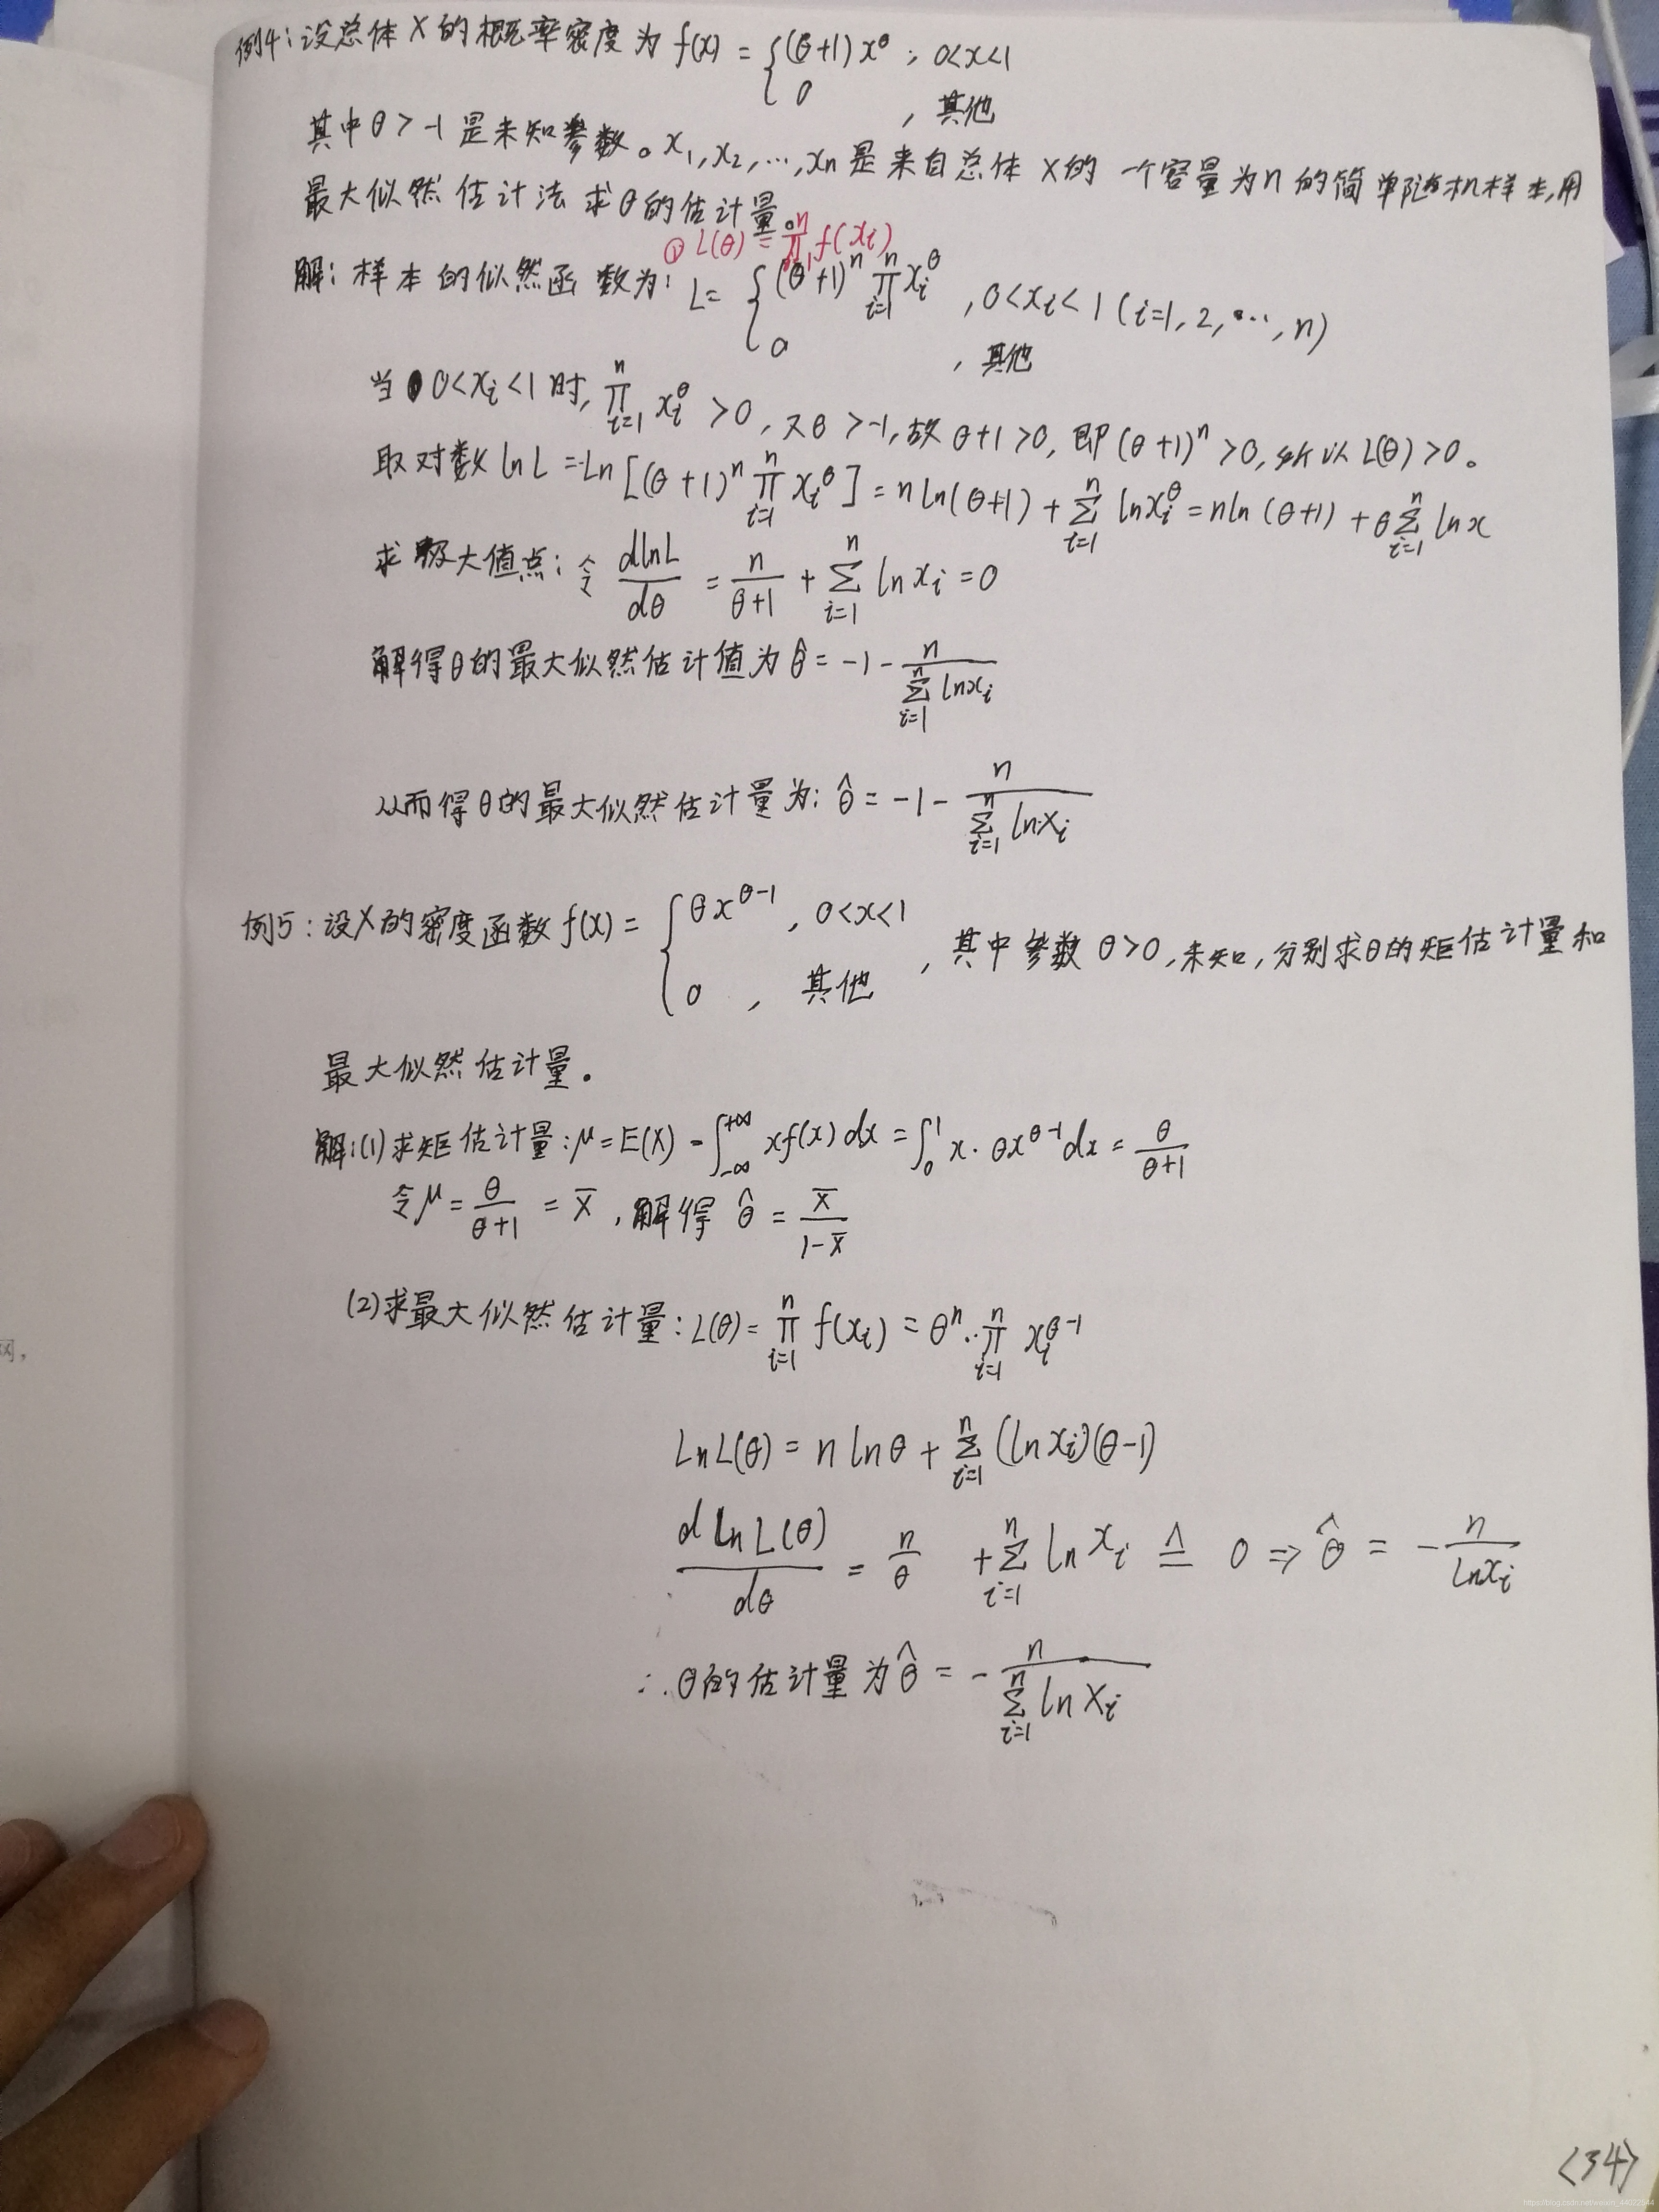 例4:设总体X的概率密度为 f(x) = { (θ+1)x^θ , 0<x<1
0 , 其他
其中θ>-1是未知参数。x₁,x₂,…,xn是来自总体X的一个容量为n的简单随机样本,用
最大似然估计法求θ的估计量。
① L(θ) = ∏_{i=1}^n f(xi)
解: 样本的似然函数为: L = { (θ+1)^n ∏_{i=1}^n xi^θ , 0<xi<1 (i=1,2,…,n)
0 , 其他
当0<xi<1时, ∏_{i=1}^n xi^θ >0, 又θ>-1, 故θ+1>0, 即(θ+1)^n>0, 所以L(θ)>0。
取对数 ln L = Ln[(θ+1)^n ∏_{i=1}^n xi^θ] = n ln(θ+1) + Σ_{i=1}^n ln xi^θ = n ln(θ+1) + θ Σ_{i=1}^n ln x
求极大值点: 令 dlnL/dθ = n/(θ+1) + Σ_{i=1}^n ln xi = 0
解得θ的最大似然估计值为 θ̂ = -1 - n/(Σ_{i=1}^n ln xi)
从而得θ的最大似然估计量为: θ̂ = -1 - n/(Σ_{i=1}^n ln Xi)
例5: 设X的密度函数 f(x) = { θx^{θ-1} , 0<x<1
0 , 其他 , 其中参数θ>0, 未知, 分别求θ的矩估计量和
最大似然估计量。
解:(1)求矩估计量: μ = E(X) = ∫_{-∞}^{+∞} x f(x) dx = ∫_0^1 x·θx^{θ-1} dx = θ/(θ+1)
令μ = θ/(θ+1) = X̄ , 解得 θ̂ = X̄/(1-X̄)
(2)求最大似然估计量: L(θ) = ∏_{i=1}^n f(xi) = θ^n·∏_{i=1}^n xi^{θ-1}
Ln L(θ) = n ln θ + Σ_{i=1}^n (ln xi)(θ-1)
d Ln L(θ)/dθ = n/θ + Σ_{i=1}^n ln xi ≜ 0 ⇒ θ̂ = - n/(ln xi)
∴ θ的估计量为 θ̂ = - n/(Σ_{i=1}^n ln Xi)
网,
<34>
https://blog.csdn.net/weixin_44072544